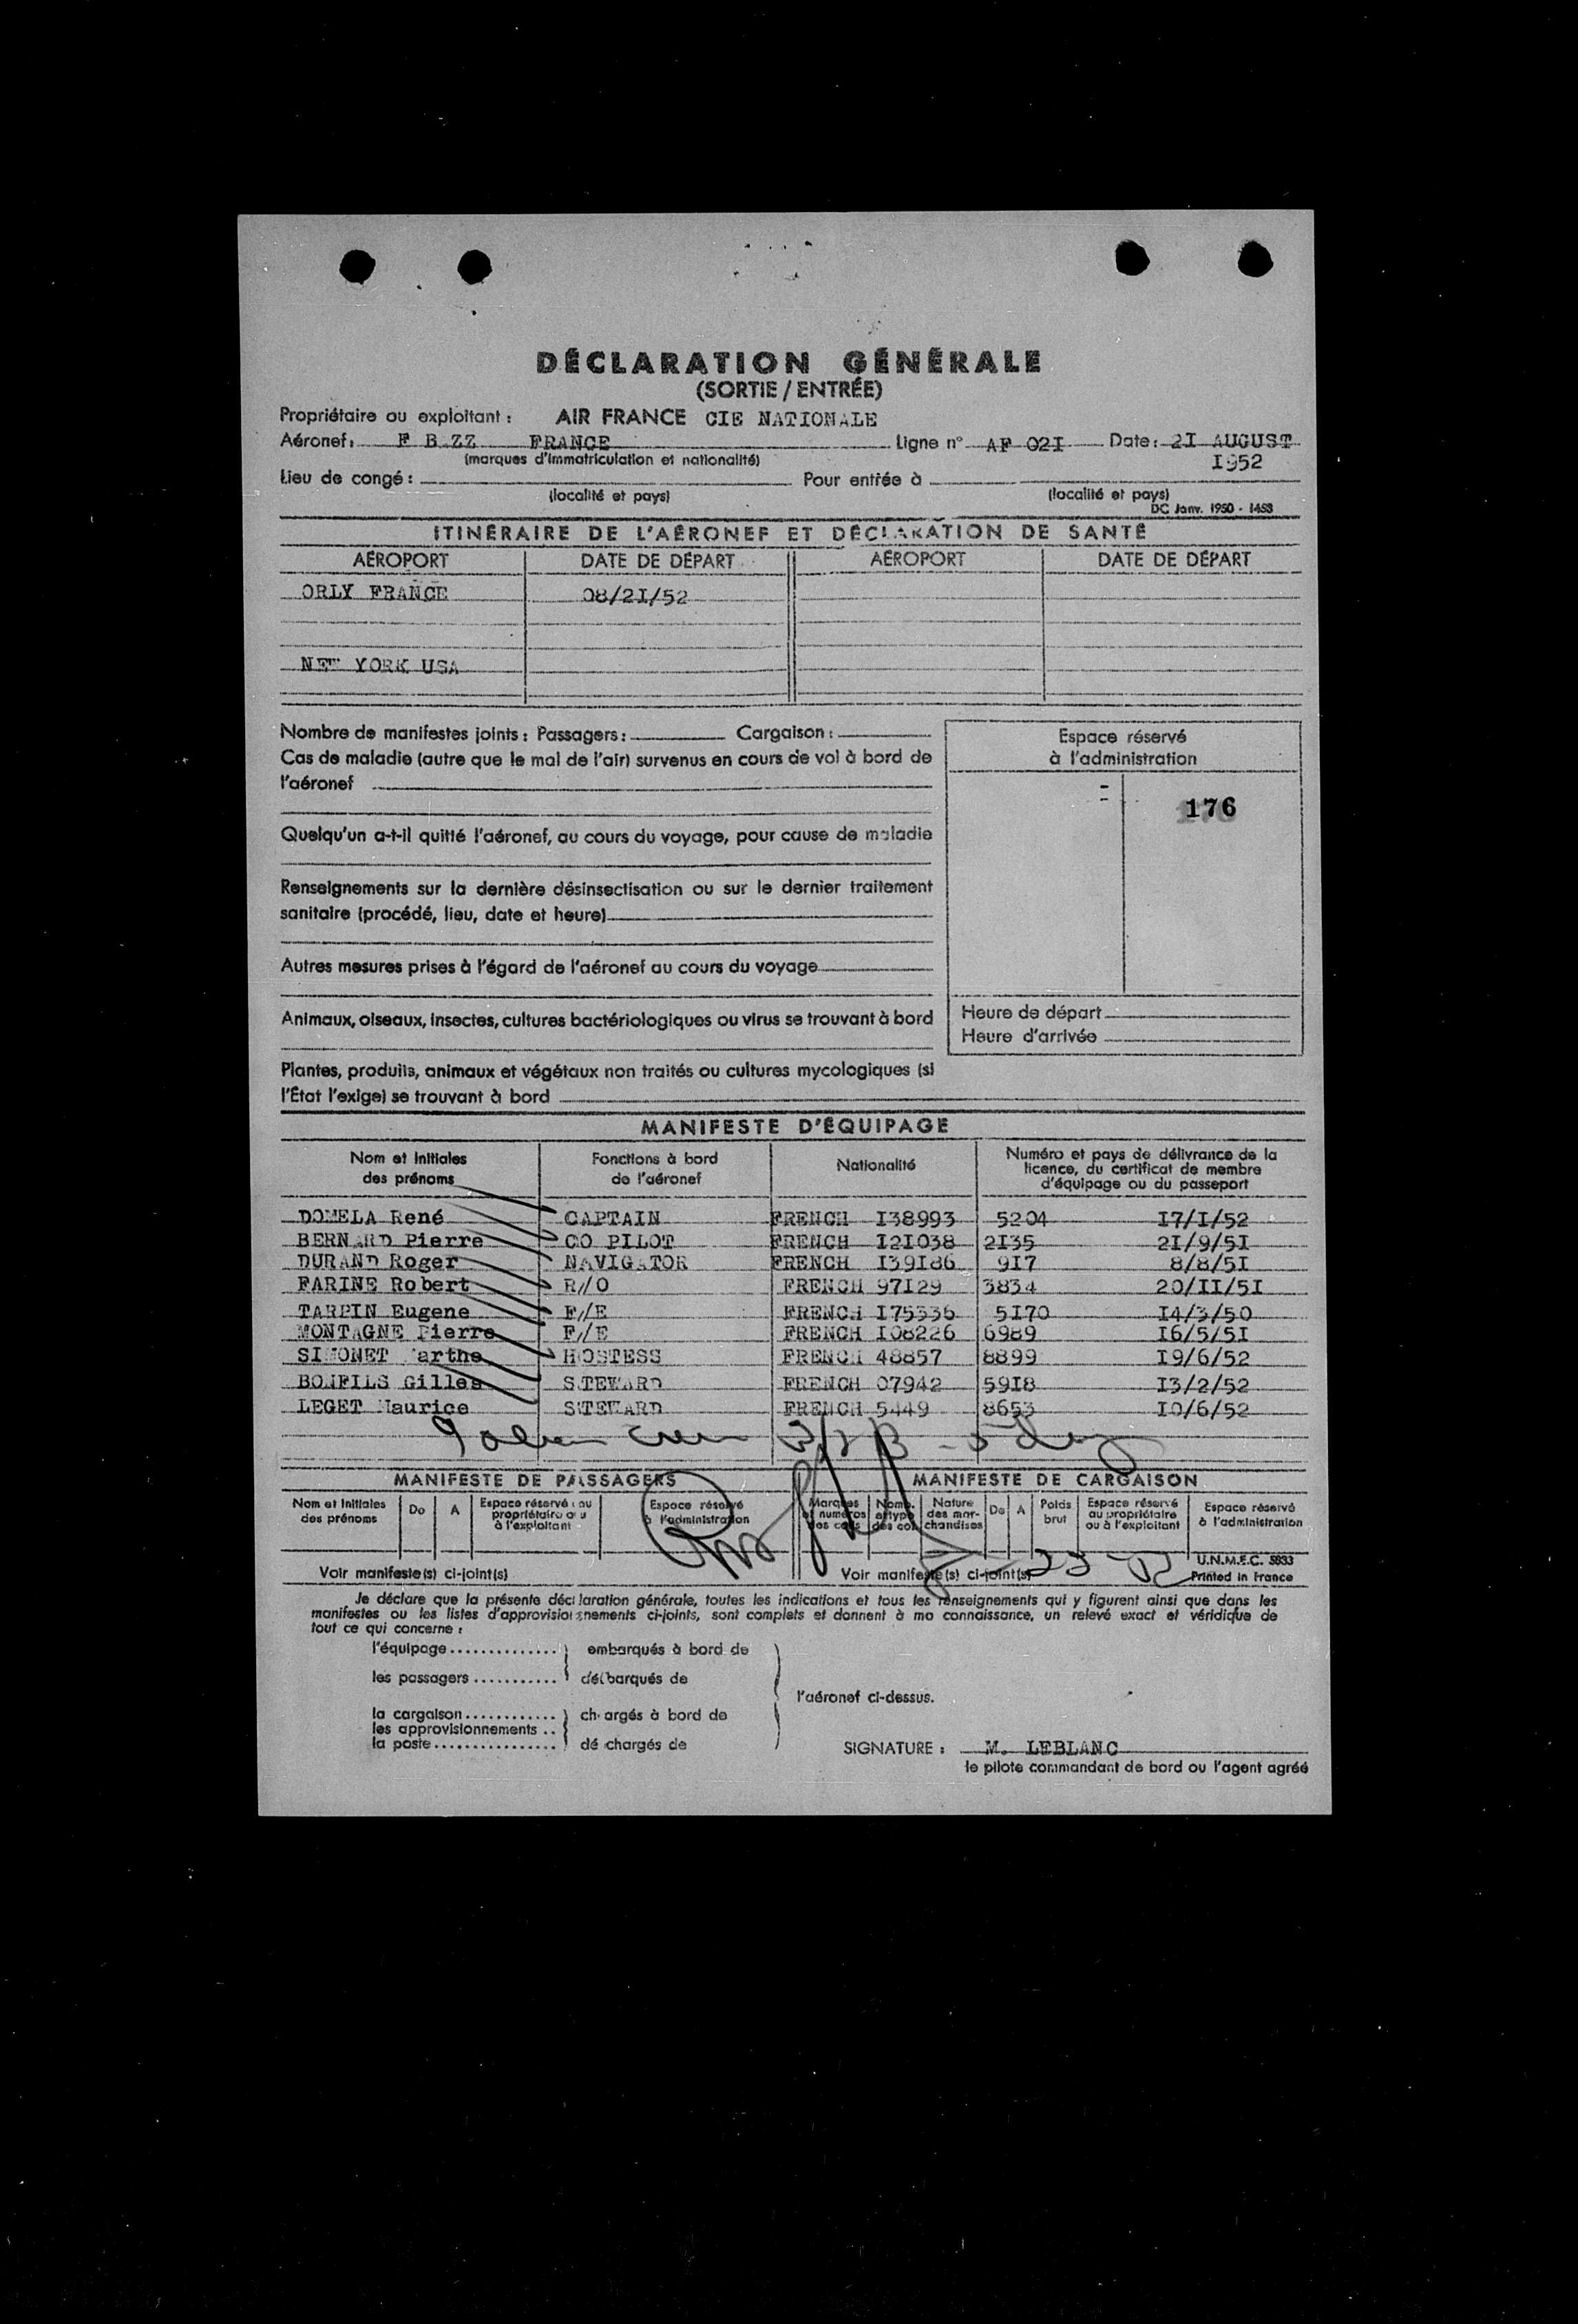 DÉCLARATION GÉNÉRALE
(SORTIE / ENTRÉE)
Propriétaire ou exploitant : AIR FRANCE CIE NATIONALE
Aéronef: F B.ZZ FRANCE Ligne n° AF 02I Date: 2I AUGUST
(marques d'immatriculation et nationalité) I952
Lieu de congé : Pour entrée à
(localité et pays) (localité et pays)
DC Janv. 1950 - 1453
ITINÉRAIRE DE L'AÉRONEF ET DÉCLARATION DE SANTÉ
AÉROPORT DATE DE DÉPART AÉROPORT DATE DE DÉPART
ORLY FRANCE 08/2I/52
NEW YORK USA
Nombre de manifestes joints : Passagers : Cargaison :
Cas de maladie (autre que le mal de l'air) survenus en cours de vol à bord de
l'aéronef
Espace réservé
à l'administration
176
Quelqu'un a-t-il quitté l'aéronef, au cours du voyage, pour cause de maladie
Renseignements sur la dernière désinsectisation ou sur le dernier traitement
sanitaire (procédé, lieu, date et heure)
Autres mesures prises à l'égard de l'aéronef au cours du voyage
Animaux, oiseaux, insectes, cultures bactériologiques ou virus se trouvant à bord
Heure de départ
Heure d'arrivée
Plantes, produits, animaux et végétaux non traités ou cultures mycologiques (si
l'État l'exige) se trouvant à bord
MANIFESTE D'ÉQUIPAGE
Nom et Initiales des prénoms Fonctions à bord de l'aéronef Nationalité Numéro et pays de délivrance de la licence, du certificat de membre d'équipage ou du passeport
DOMELA René CAPTAIN FRENCH I38993 5204 I7/I/52
BERNARD Pierre CO PILOT FRENCH I2I038 2I35 2I/9/5I
DURAND Roger NAVIGATOR FRENCH I39I86 9I7 8/8/5I
FARINE Robert R//O FRENCH 97I29 3834 20/II/5I
TARPIN Eugene F//E FRENCH I75336 5I70 I4/3/50
MONTAGNE Pierre F//E FRENCH I08226 6989 I6/5/5I
SIMONET Marthe HOSTESS FRENCH 48857 8899 I9/6/52
BONFILS Gilles STEWARD FRENCH 07942 59I8 I3/2/52
LEGET Maurice STEWARD FRENCH 5449 8653 I0/6/52
MANIFESTE DE PASSAGERS MANIFESTE DE CARGAISON
Nom et Initiales des prénoms De A Espace réservé au propriétaire ou à l'exploitant Espace réservé à l'administration Marques et numéros des colis Nomb. et type des col. Nature des marchandises De A Poids brut Espace réservé au propriétaire ou à l'exploitant Espace réservé à l'administration
U.N.M.E.C. 5833
Voir manifeste(s) ci-joint(s) Voir manifeste(s) ci-joint(s) Printed in France
Je déclare que la présente déclaration générale, toutes les indications et tous les renseignements qui y figurent ainsi que dans les
manifestes ou les listes d'approvisionnements ci-joints, sont complets et donnent à ma connaissance, un relevé exact et véridique de
tout ce qui concerne :
l'équipage .............. embarqués à bord de
les passagers ........... débarqués de
l'aéronef ci-dessus.
la cargaison ............ chargés à bord de
les approvisionnements ..
la poste ................ déchargés de
SIGNATURE : M. LEBLANC
le pilote commandant de bord ou l'agent agréé